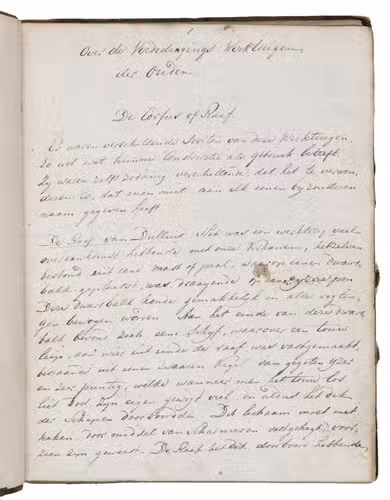 1
Over de Verdedigings Werktuigen
der Ouden
De Corfus of Raaf.
Er waren verschillende Soorten van deze Werktuigen,
zo wel wat hunne Constructie als gebruik betreft.
Zy waren zelfs zodanig verschillende, dat het te verwon,
deren is, dat men niet aan elk eenen byzonderen
naam gegeven heeft.
De Raaf van Duillius. Het was een werktuig veel
overeenkomst hebbende met onze Kraanen, hetzelve
bestond uit eene mast of paal, waarop eenen dwars
balk geplaatst was, draayende op eene yzere pen
Deze dwarsbalk konde gemakkelyk in alle rigtin,
gen bewogen worden Aan het einde van deze dwars
balk bevond zich een Schyf, waarover een touw
liep, aan wiens einde de raaf was vastgemaakt,
bestaande uit eenen zwaaren Kegel van gegoten yzer
en zeer puntig, welke wanneer men het touw los
liet door zyn eigen gewigt viel en aldus het dek
der Schepen doorboorden. Dit lichaam moet met
haken, door middel van Scharnieren vastgehegt, voor,
zien zyn geweest. De Raaf het dek doorboord hebbende,